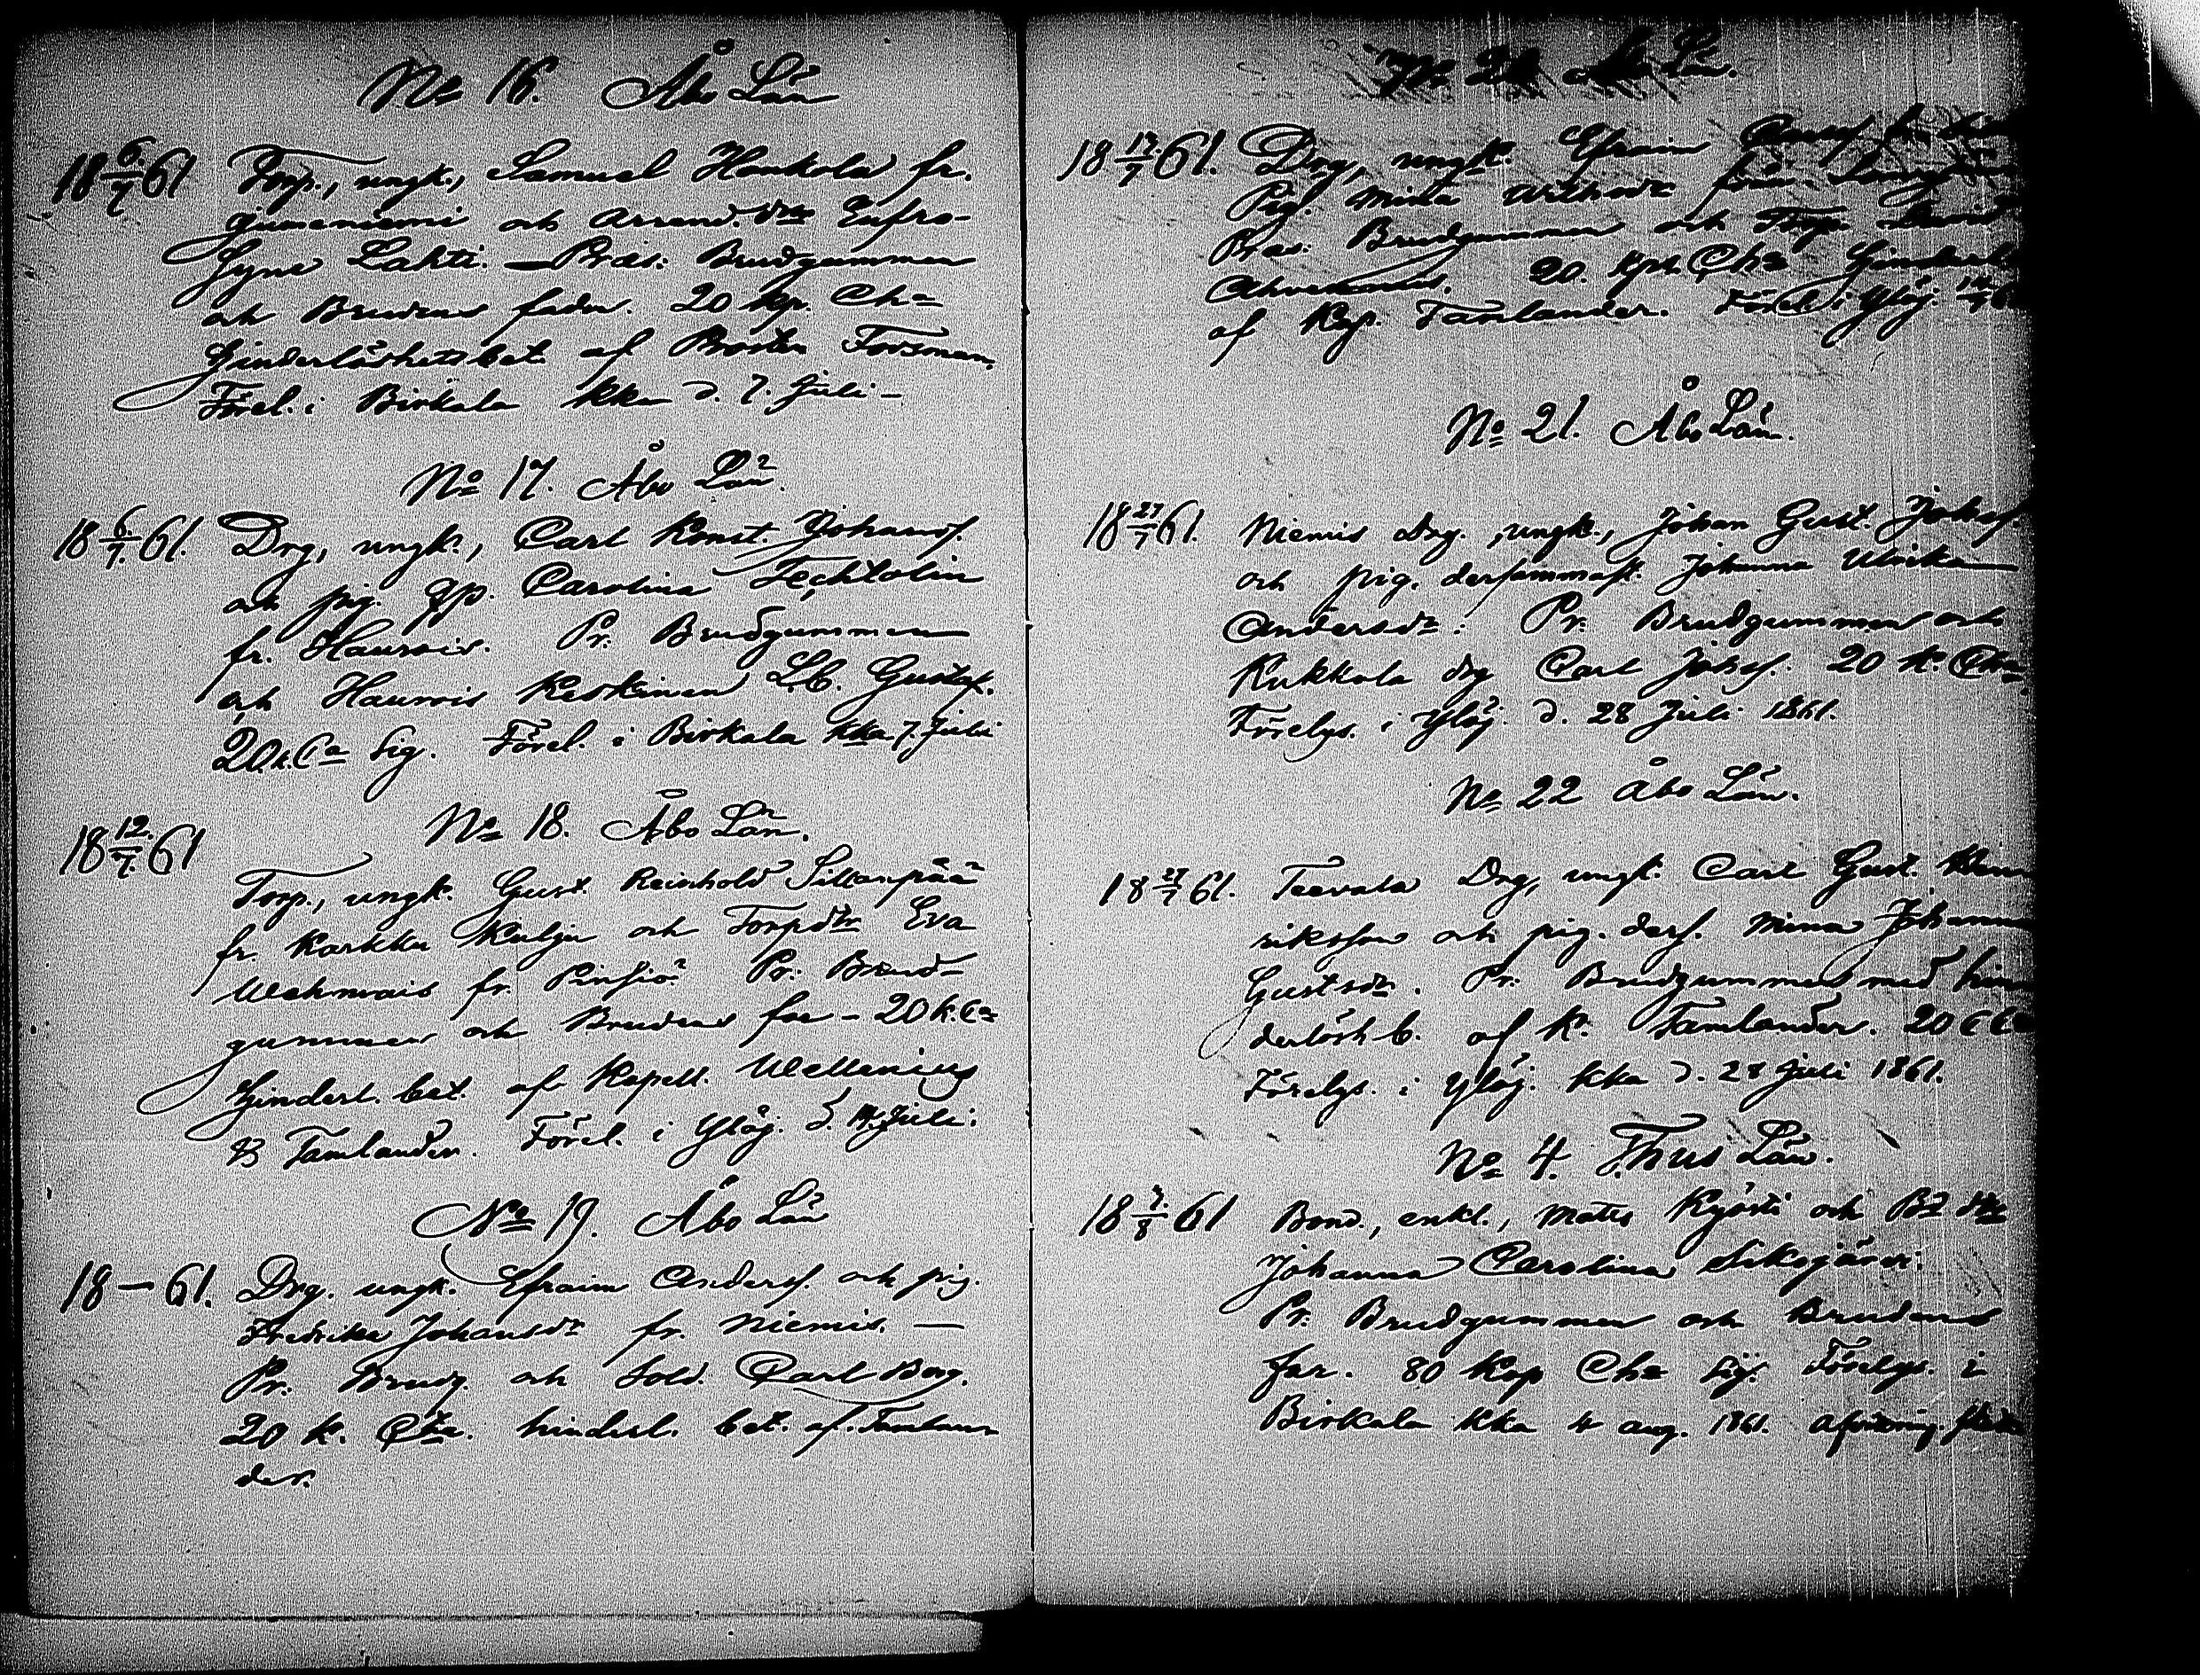 No 16. Åbo Län
18 6/7 61 Torp., ungk., Samuel Honkola fr.
och Arrend. dtr Eufro-
syne Lahti. — Præs: Brudgummen
och Brudens fader. 20 kp. Cha
hinderlöshetsbet. af Prosten Forsman.
Förel. i Birkala kka d. 7. Juli –
No 17. Åbo Län.
18 6/7 61. Drg, ungk., Carl Konst. Johansf.
och pig. Carolina Techtolin
fr. Haurois. Pr. Brudgummen
och Haurois Keskinen Gustaf.
20 k. Ca Sig. Förel. i Birkala kka 7. Juli
No 18. Åbo Län.
18 12/7 61
Torp., ungk. Gust. Reinhold Sillanpää
fr. Karkku Kulju och Torpdtr Eva
Wehmais fr. Pinsiö. Pr: Brud-
gummen och Brudens far – 20 k. Ca
hinderl. bet. af Kapell. Wellenius
& Tamlander. Förel. i Ylöj. d. 14. Juli.
No 19. Åbo Län
18 — 61. Drg. ungk. Efraim Andersf. och pig.
Fredrika Johansdr fr. Niemis. —
Pr. Brudg. och Sold. Carl Borg.
20 k. Cha. hinderl. bet. af. Tamlan-
der.
18 12/7 61. Drg, ungk. Efraim
Pig. Mina från
Præs: Brudgummen och Torp.
20. kpk Cha
af Kap. Tamlander. Förel. i Ylöj.
No 21. Åbo Län.
18 27/7 61. Niemis Drg., ungk., Johan Gust. Johsf
och pig. dersammast. Johanna Ulrika
Andersdr. Pr. Brudgummen och
Kukkola drg Carl Johsf. 20 k. Cha.
Förelys. i Ylöj. d. 28 Juli 1861.
No 22 Åbo Län.
18 27/7 61. Teevala Drg, ungk. Carl Gust. Hen
riksson och pig. ders. Mina Johanna
Gustsdr. Pr. Brudgummen med hin
derlösh b. af K. Tamlander. 20
Förelys. i Ylöj. kka d. 28 Juli 1861.
No 4. Thus Län.
18 /8 61 Bond., enkl., Matts Kyösti och Bd dtr
Johanna Carolina Siksjärvi.
Pr. Brudgummen och Brudens
far. 80 Kop Cha Sig. Förelys. i
Birkala kka 4 aug. 1861.